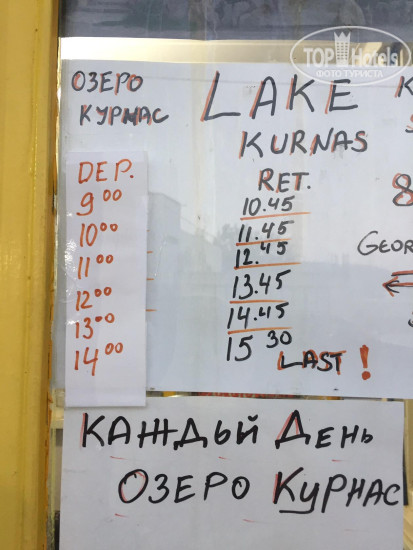 TOPHotels
ФОТО ТУРИСТА
ОЗЕРО
КУРНАС
LAKE
KURNAS
DEP.
9 00
10 00
11 00
12 00
13 00
14 00
RET.
10.45
11.45
12.45
13.45
14.45
15 30
LAST !
8
GEOR
КАЖДЫЙ ДЕНЬ
ОЗЕРО КУРНАС